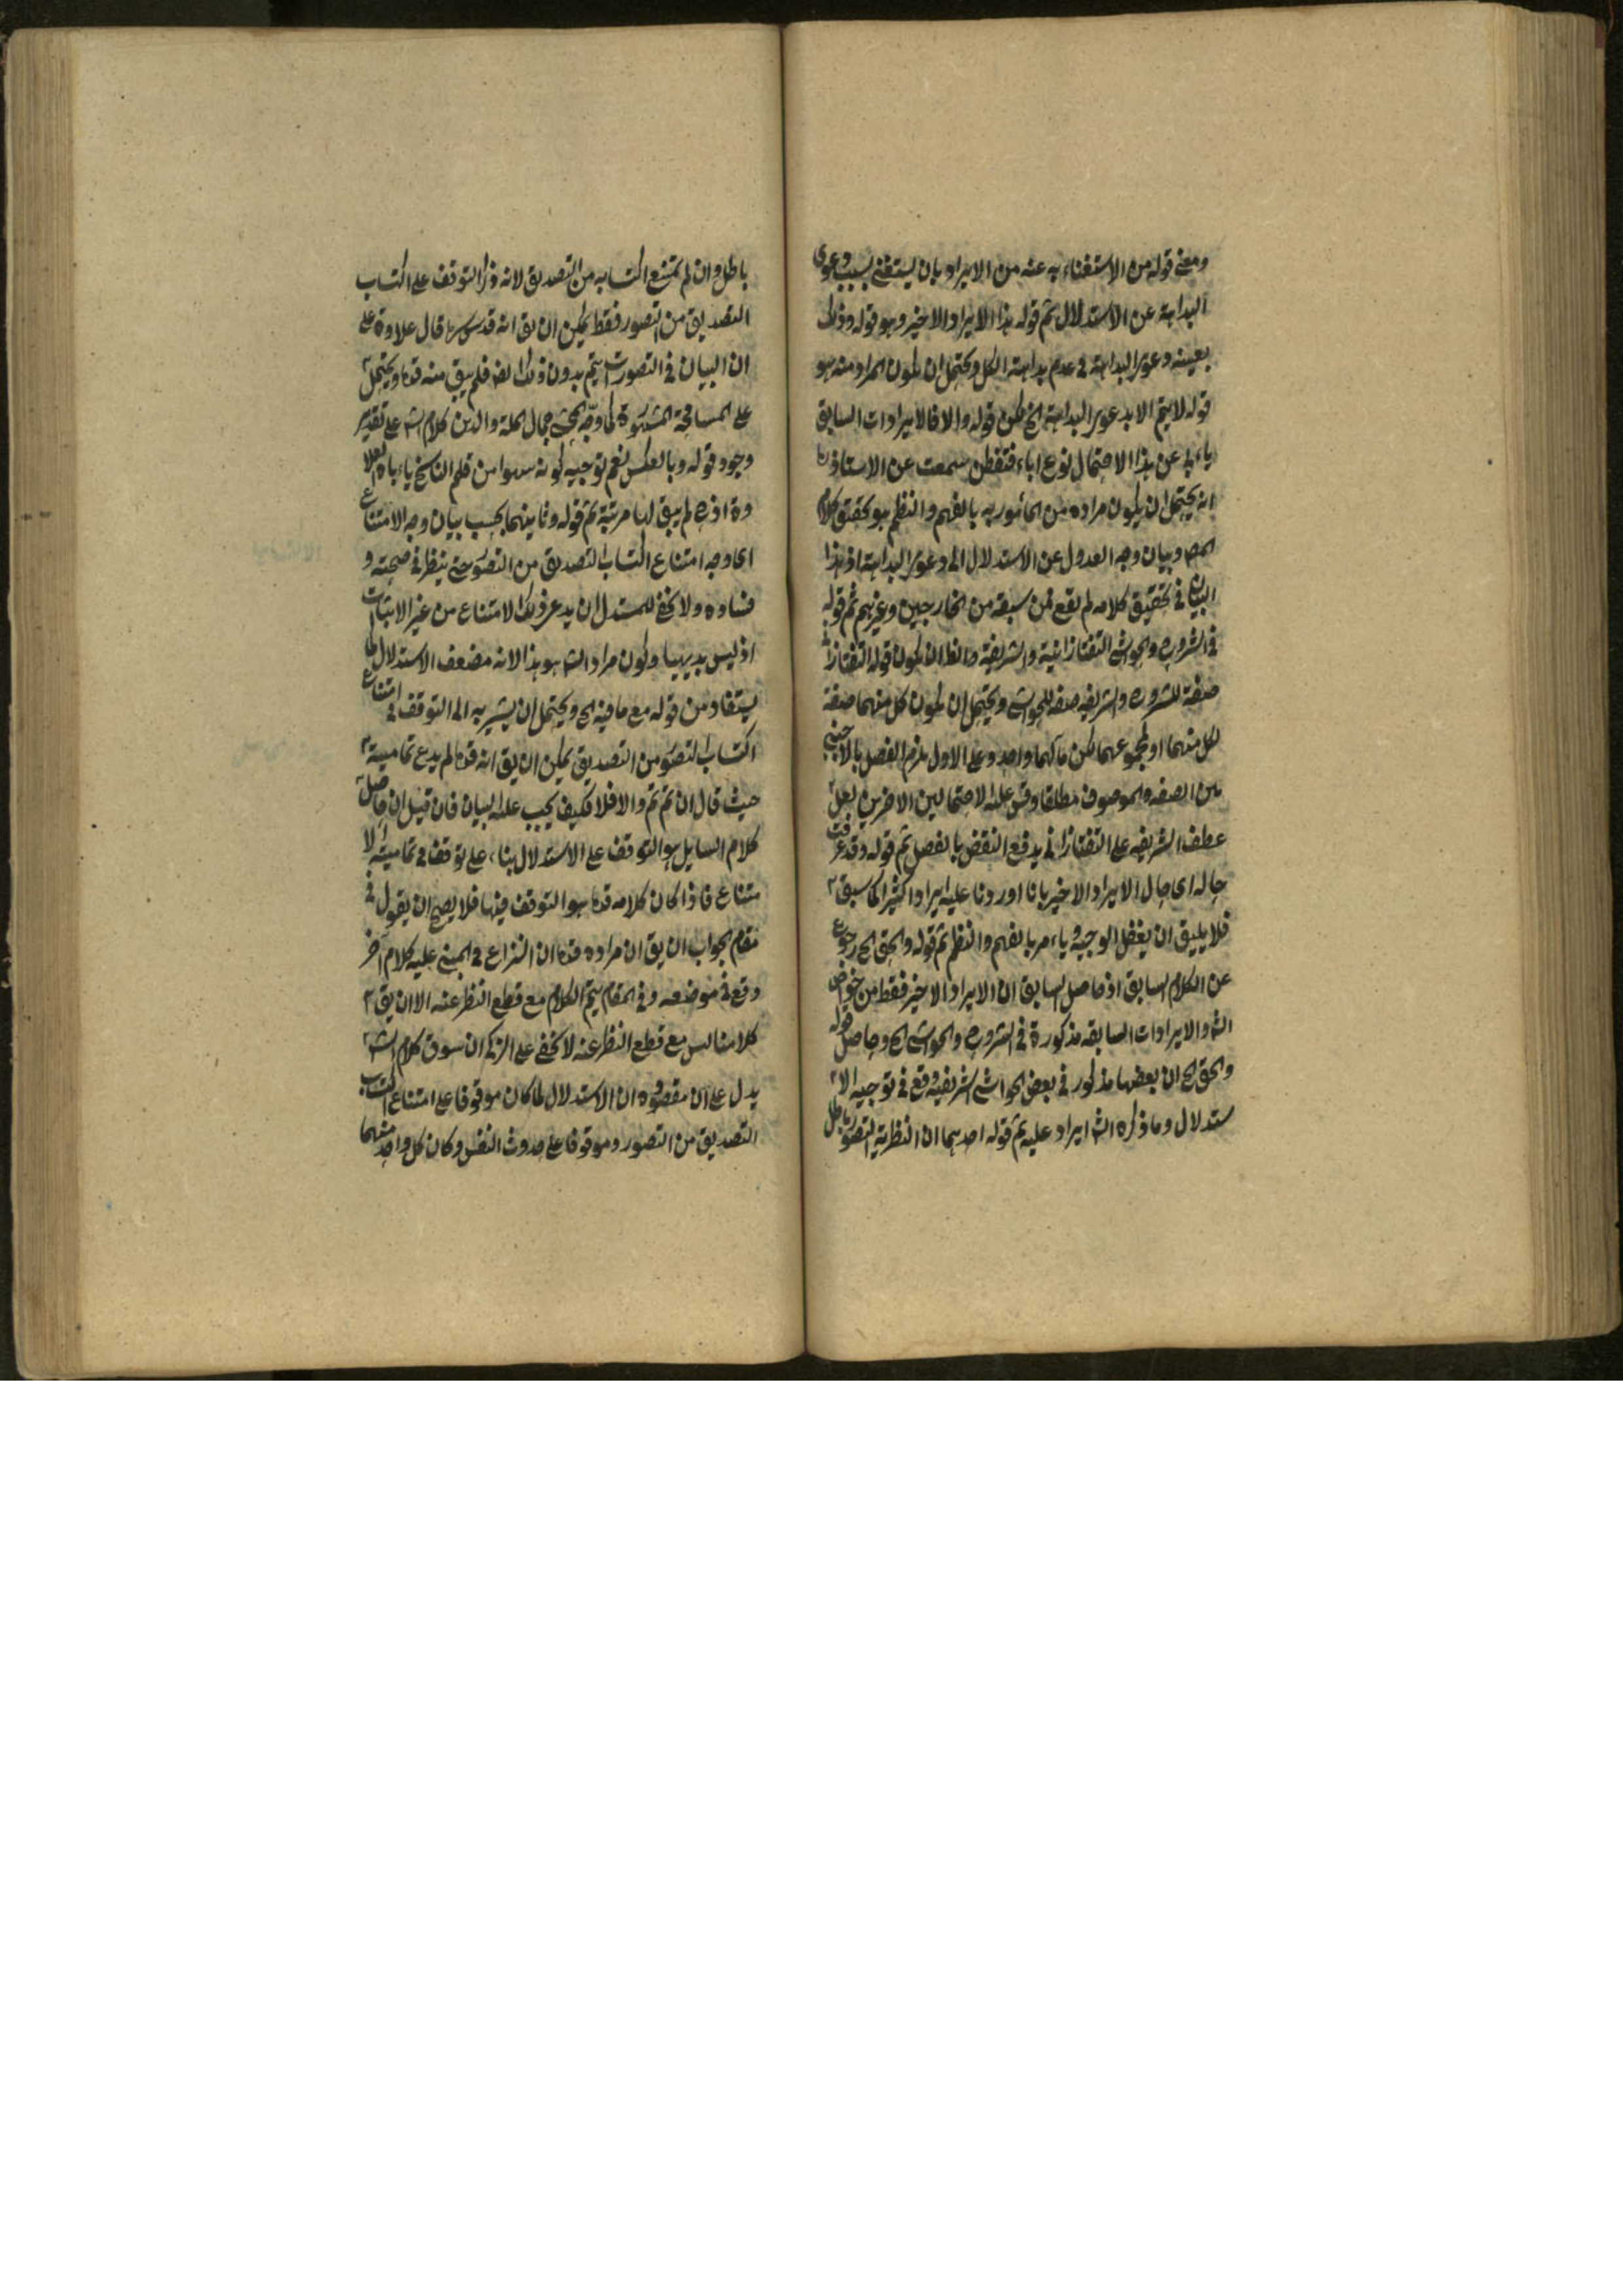 ومعنى قوله من الاستغناء به عنه من الايراد بان يستغنى بسبب دعوى
البداهة عن الاستدلال ثم قوله هذا الايراد الاخير وهو قوله وذلك
بعينه دعوى البداهة فى عدم بداهة الكل ويحتمل ان يكون المراد منه هو
قوله لا يتم الا بدعوى البداهة الخ لكن قوله والا فالايرادات السابق
ياء باء عن هذا الاحتمال نوع اباء فتفطن سمعت عن الاستاذ
انه يحتمل ان يكون مراده من المأمور به بالفهم والنظم هو تحقيق كلام
المص وبيان وجه العدول عن الاستدلال الى دعوى البداهة اذ هذا
البيان فى تحقيق كلامه لم يقع لمن سبقه من الخارجين وغيرهم ثم قوله
فى الشروح والحواشى التفتازانية والشريفية فالظ ان يكون قوله التفتازا
صفة للشروح والشريفيه صفة للحواشى ويحتمل ان يكون كل منهما صفة
لكل منهما او لمجموعهما لكن مآلهما واحد وعلى الاول يلزم الفصل بالاجنبى
بين الصفه والموصوف مطلقا وقس عليه الاحتمالين الاخرين لعل
عطف الشريفيه على التفتازانى يدفع النقض بالفصل ثم قوله وقد عرفت
حاله اى حال الايراد الاخير بانا اوردنا عليه ايرادا كثيرا كما سبق
فلا يليق ان يغفل الوجيه ويأمر بالفهم والنظم ثم قوله والحق الخ رجوع
عن الكلام السابق اذ حاصل السابق ان الايراد الاخير فقط من خواص
الش والايرادات السابقه مذكورة فى الشروح والحواشى الخ وحاصل قوله
والحق الخ ان بعضها مذكور فى بعض الحواشى الشريفية وقع فى توجيه الا
ستدلال وما ذكره الش ايراد عليه ثم قوله احدهما ان النظرية التصور باطل
باطل وان لم يمتنع اكتسابه من التصديق لانه ذكر التوقف على اكتساب
التصديق من التصور فقط يمكن ان يق انه قدس سره قال علاوة على
ان البيان فى التصورات يتم بدون ذلك ايض فلم يبق منه قده ويحتمل
على المسامحة المشهورة كما وجه المحشى جمال الملة والدين كلام الش على تقدير
وجود قوله وبالعكس نعم توجيه كونه سهوا من قلم الناسخ ياء باه العلا
وة اذ ح لم يبق لها مرتبة ثم قوله وثانيهما بحسب بيان وجه الامتناع
اى وجه امتناع اكتساب التصديق من التصور حتى ينظر فى صحته و
فساده ولا يخفى للمستدل ان يدعى ذلك الامتناع من غير الاثبات
اذ ليس بديهيا وكون مراد الش هو هذا لانه مضعف الاستدلال كما
يستفاد من قوله مع ما فيه الخ ويحتمل ان يشير به الى التوقف فى امتناع
اكتساب التصور من التصديق يمكن ان يق انه قده لم يدع تماميته
حيث قال ان تم تم والا فلا فكيف يجب عليه البيان فان قيل ان حاصل
كلام السايل هو التوقف على الاستدلال بناء على توقف فى تمامية الا
متناع فاذا كان كلامه قده هو التوقف فيها فلا يصح ان يقول فى
مقام الجواب ان يق ان مراده قده ان النزاع فى المبنى عليه كلام آخر
وقع فى موضعه وفى المقام يتم الكلام مع قطع النظر عنه الا ان يق
كلامنا ليس مع قطع النظر عنه لا يخفى على الزكى ان سوق كلام الش
يدل على ان مقصوده ان الاستدلال لما كان موقوفا على امتناع اكتساب
التصديق من التصور وموقوفا على حدوث النفس وكان كل واحد منهما